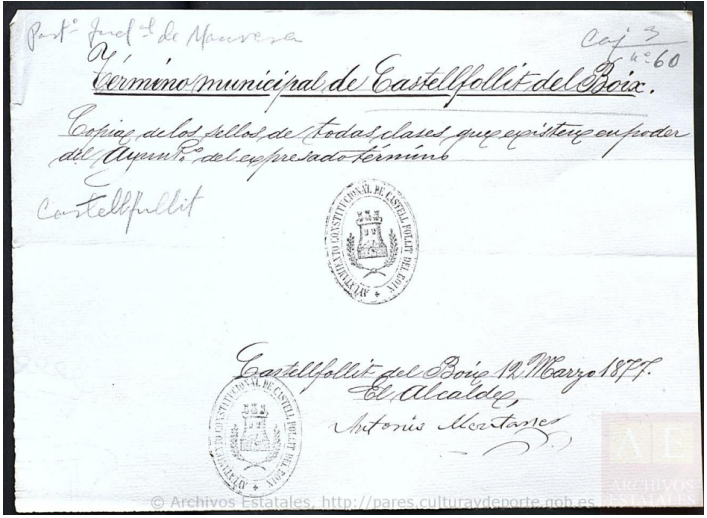 Part.º Jud.ˡ de Manresa
Caj 3
nº 60
Término municipal de Castellfollit del Boix.
Copia de los sellos de todas clases que existen en poder
del Ayunt.º del expresado término
Castellfullit
AYUNTAMIENTO CONSTITUCIONAL DE CASTELL FOLLIT DEL BOIX
Castellfollit del Boix 12 Marzo 1877.
El Alcalde,
Antonio
AYUNTAMIENTO CONSTITUCIONAL DE CASTELL FOLLIT DEL BOIX
AE
ARCHIVOS
ESTATALES
© Archivos Estatales, http://pares.culturaydeporte.gob.es